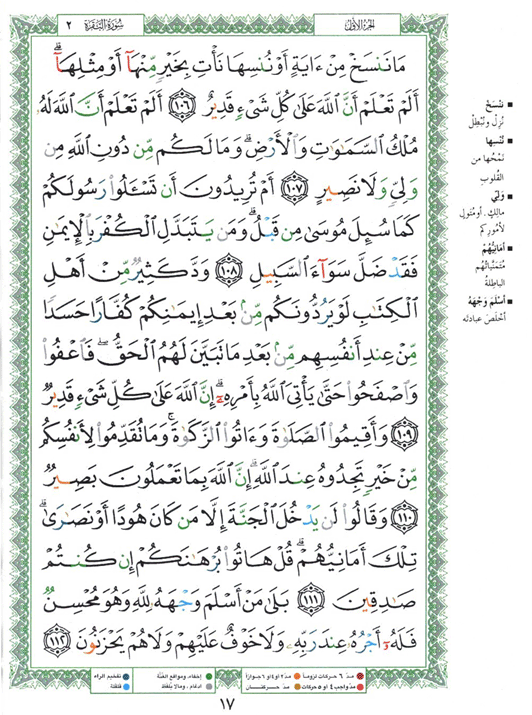 الجزء الأول
سورة البقرة ٢
مَا نَنسَخْ مِنْ ءَايَةٍ أَوْ نُنسِهَا نَأْتِ بِخَيْرٍ مِّنْهَآ أَوْ مِثْلِهَآ ۗ
أَلَمْ تَعْلَمْ أَنَّ ٱللَّهَ عَلَىٰ كُلِّ شَىْءٍ قَدِيرٌ ١٠٦ أَلَمْ تَعْلَمْ أَنَّ ٱللَّهَ لَهُۥ
مُلْكُ ٱلسَّمَـٰوَٰتِ وَٱلْأَرْضِ ۗ وَمَا لَكُم مِّن دُونِ ٱللَّهِ مِن
وَلِىٍّ وَلَا نَصِيرٍ ١٠٧ أَمْ تُرِيدُونَ أَن تَسْـَٔلُوا۟ رَسُولَكُمْ
كَمَا سُئِلَ مُوسَىٰ مِن قَبْلُ ۗ وَمَن يَتَبَدَّلِ ٱلْكُفْرَ بِٱلْإِيمَـٰنِ
فَقَدْ ضَلَّ سَوَآءَ ٱلسَّبِيلِ ١٠٨ وَدَّ كَثِيرٌ مِّنْ أَهْلِ
ٱلْكِتَـٰبِ لَوْ يَرُدُّونَكُم مِّنۢ بَعْدِ إِيمَـٰنِكُمْ كُفَّارًا حَسَدًا
مِّنْ عِندِ أَنفُسِهِم مِّنۢ بَعْدِ مَا تَبَيَّنَ لَهُمُ ٱلْحَقُّ ۖ فَٱعْفُوا۟
وَٱصْفَحُوا۟ حَتَّىٰ يَأْتِىَ ٱللَّهُ بِأَمْرِهِۦٓ ۗ إِنَّ ٱللَّهَ عَلَىٰ كُلِّ شَىْءٍ قَدِيرٌ
١٠٩ وَأَقِيمُوا۟ ٱلصَّلَوٰةَ وَءَاتُوا۟ ٱلزَّكَوٰةَ ۚ وَمَا تُقَدِّمُوا۟ لِأَنفُسِكُم
مِّنْ خَيْرٍ تَجِدُوهُ عِندَ ٱللَّهِ ۗ إِنَّ ٱللَّهَ بِمَا تَعْمَلُونَ بَصِيرٌ
١١٠ وَقَالُوا۟ لَن يَدْخُلَ ٱلْجَنَّةَ إِلَّا مَن كَانَ هُودًا أَوْ نَصَـٰرَىٰ ۗ
تِلْكَ أَمَانِيُّهُمْ ۗ قُلْ هَاتُوا۟ بُرْهَـٰنَكُمْ إِن كُنتُمْ
صَـٰدِقِينَ ١١١ بَلَىٰ مَنْ أَسْلَمَ وَجْهَهُۥ لِلَّهِ وَهُوَ مُحْسِنٌ
فَلَهُۥٓ أَجْرُهُۥ عِندَ رَبِّهِۦ وَلَا خَوْفٌ عَلَيْهِمْ وَلَا هُمْ يَحْزَنُونَ ١١٢
■ نَنسَخْ
نُزِلْ ونُبْطِلْ
■ نُنسِها
نَمْحُها من
القُلوبِ
■ وَلِيّ
مالِكٍ. أو مُتَولٍّ
لأمُورِكم
■ أمانِيُّهُمْ
مُتَمَنّيَاتُهُم
الباطِلة
■ أَسْلَمَ وَجْهَهُ
أخْلَصَ عبادته
مدّ ٦ حركات لزوماً
مدّ ٢ أو ٤ أو ٦ جوازاً
مدّ واجب ٤ أو ٥ حركات
مدّ حركتان
إخفاء، ومواقع الغُنَّة
ادغام، وما لا يُلفَظ
تفخيم الراء
قلقلة
١٧